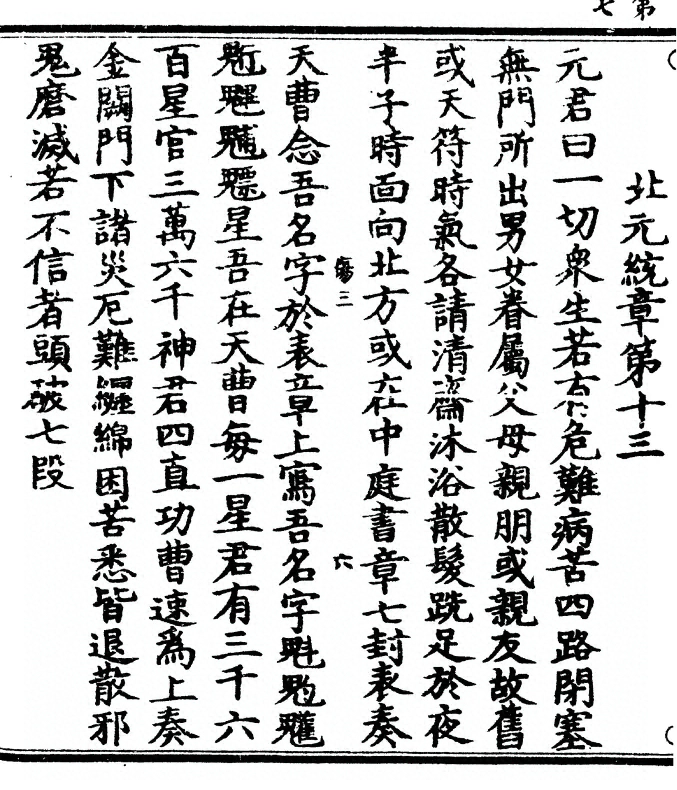 第七
北元統章第十三
元君曰一切衆生若有危難病苦四路閉塞
無門所出男女眷屬父母親朋或親友故舊
或天符時氣各請清齋沐浴散髮跣足於夜
半子時面向北方或在中庭書章七封表奏
傷三
六
天曹念吾名字於表章上寫吾名字魁䰢䰧
魓䰯䰰䰴星吾在天曹每一星君有三千六
百星官三萬六千神君四直功曹速爲上奏
金闕門下諸災厄難纏綿困苦悉皆退散邪
鬼磨滅若不信者頭破七段